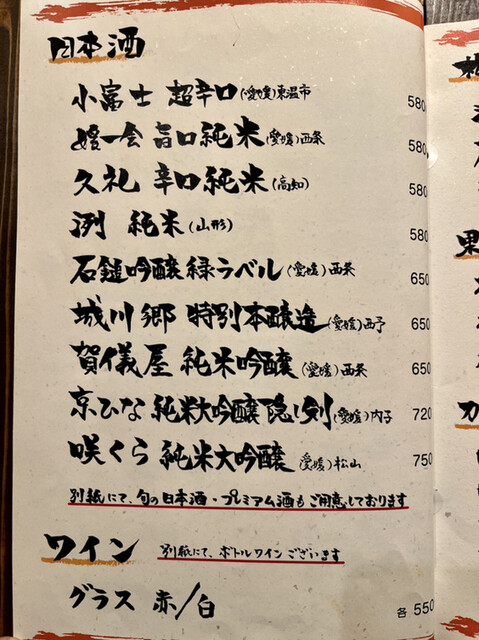 日本酒
小富士 超辛口(愛媛)東温市 580
媛一会 旨口純米(愛媛)西条 580
久礼 辛口純米(高知) 580
洌 純米(山形) 580
石鎚吟醸 緑ラベル(愛媛)西条 650
城川郷 特別本醸造(愛媛)西予 650
賀儀屋 純米吟醸(愛媛)西条 650
京ひな 純米大吟醸 隠し剣(愛媛)内子 720
咲くら 純米大吟醸(愛媛)松山 750
別紙にて、旬の日本酒・プレミアム酒もご用意しております
ワイン 別紙にて、ボトルワインございます
グラス 赤/白 各550
果